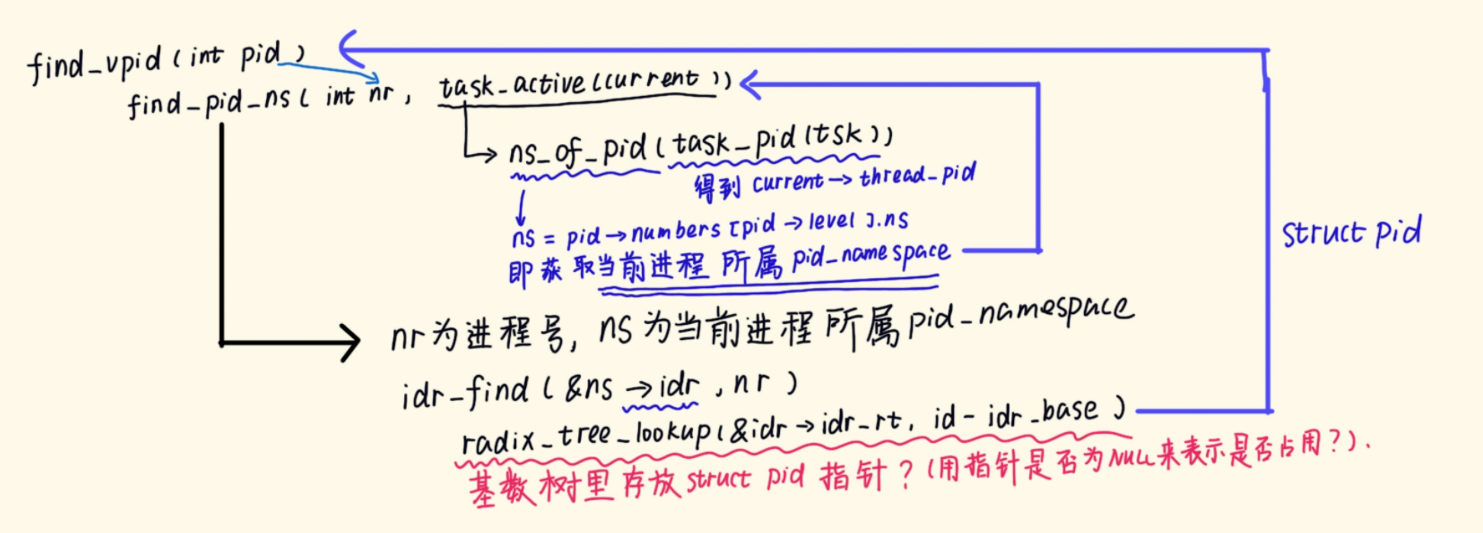 find_vpid(int pid)
find_pid_ns(int nr, task_active(current))
ns_of_pid(task_pid(tsk))
得到 current→thread_pid
ns = pid→numbers[pid→level].ns
即获取当前进程 所属 pid_namespace
struct pid
nr为进程号, ns为当前进程所属pid_namespace
idr_find(&ns→idr, nr)
radix_tree_lookup(&idr→idr_rt, id-idr_base)
基数树里存放struct pid 指针?(用指针是否为NULL来表示是否占用?).